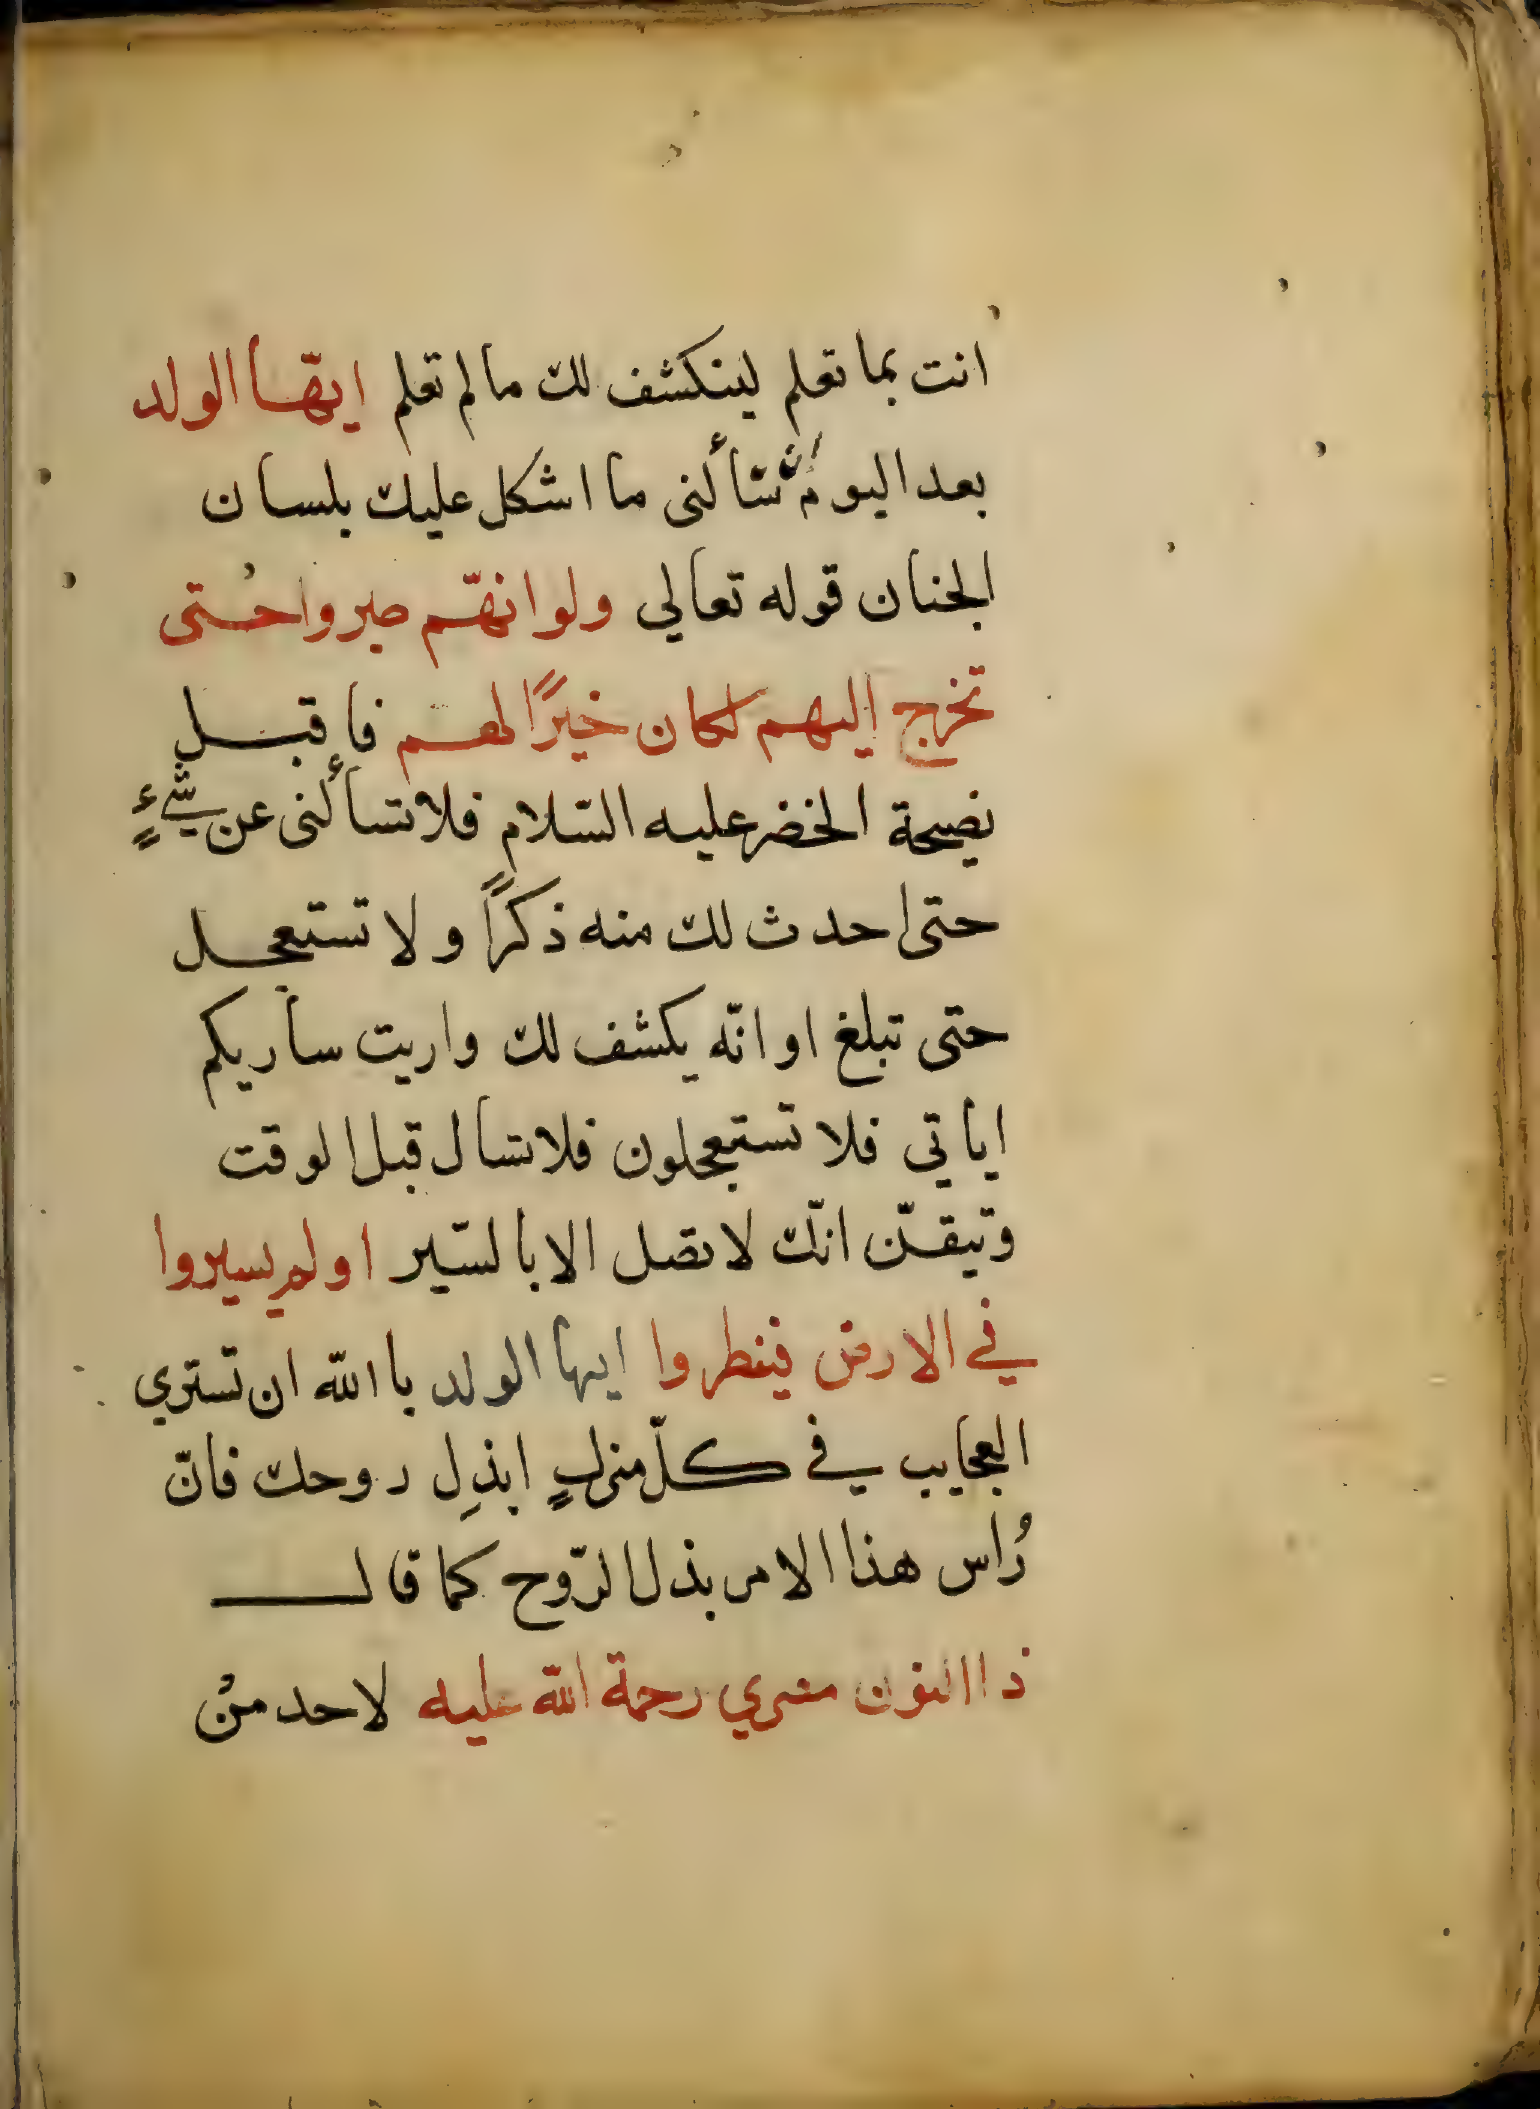 انت بما تعلم لينكشف لك مالم تعلم ايّها الولد
بعد اليوم تسألنى ما اشكل عليك بلسان
الجنان قوله تعالي ولو انهّم صبروا حتى
تخرج إليهم لكان خيرًا لهم فاقبل
نصيحة الخضر عليه السّلام فلا تسألنى عن شئٍ
حتى احدث لك منه ذكرًا ولا تستعجل
حتى تبلغ اوانّه يكشف لك واريت سأريكم
اياتي فلا تستعجلون فلا تسأل قبل الوقت
وتيقّن انّك لا تصل الا بالسّير اولم يسيروا
في الارض فينظروا ايها الولد با الله ان تستري
العجايب في كلّ منزلٍ ابذلِ روحك فانّ
رُاس هذا الامر بذل الرّوح كما قال
ذا النون مصري رحمة اللّه عليه لاحد منْ